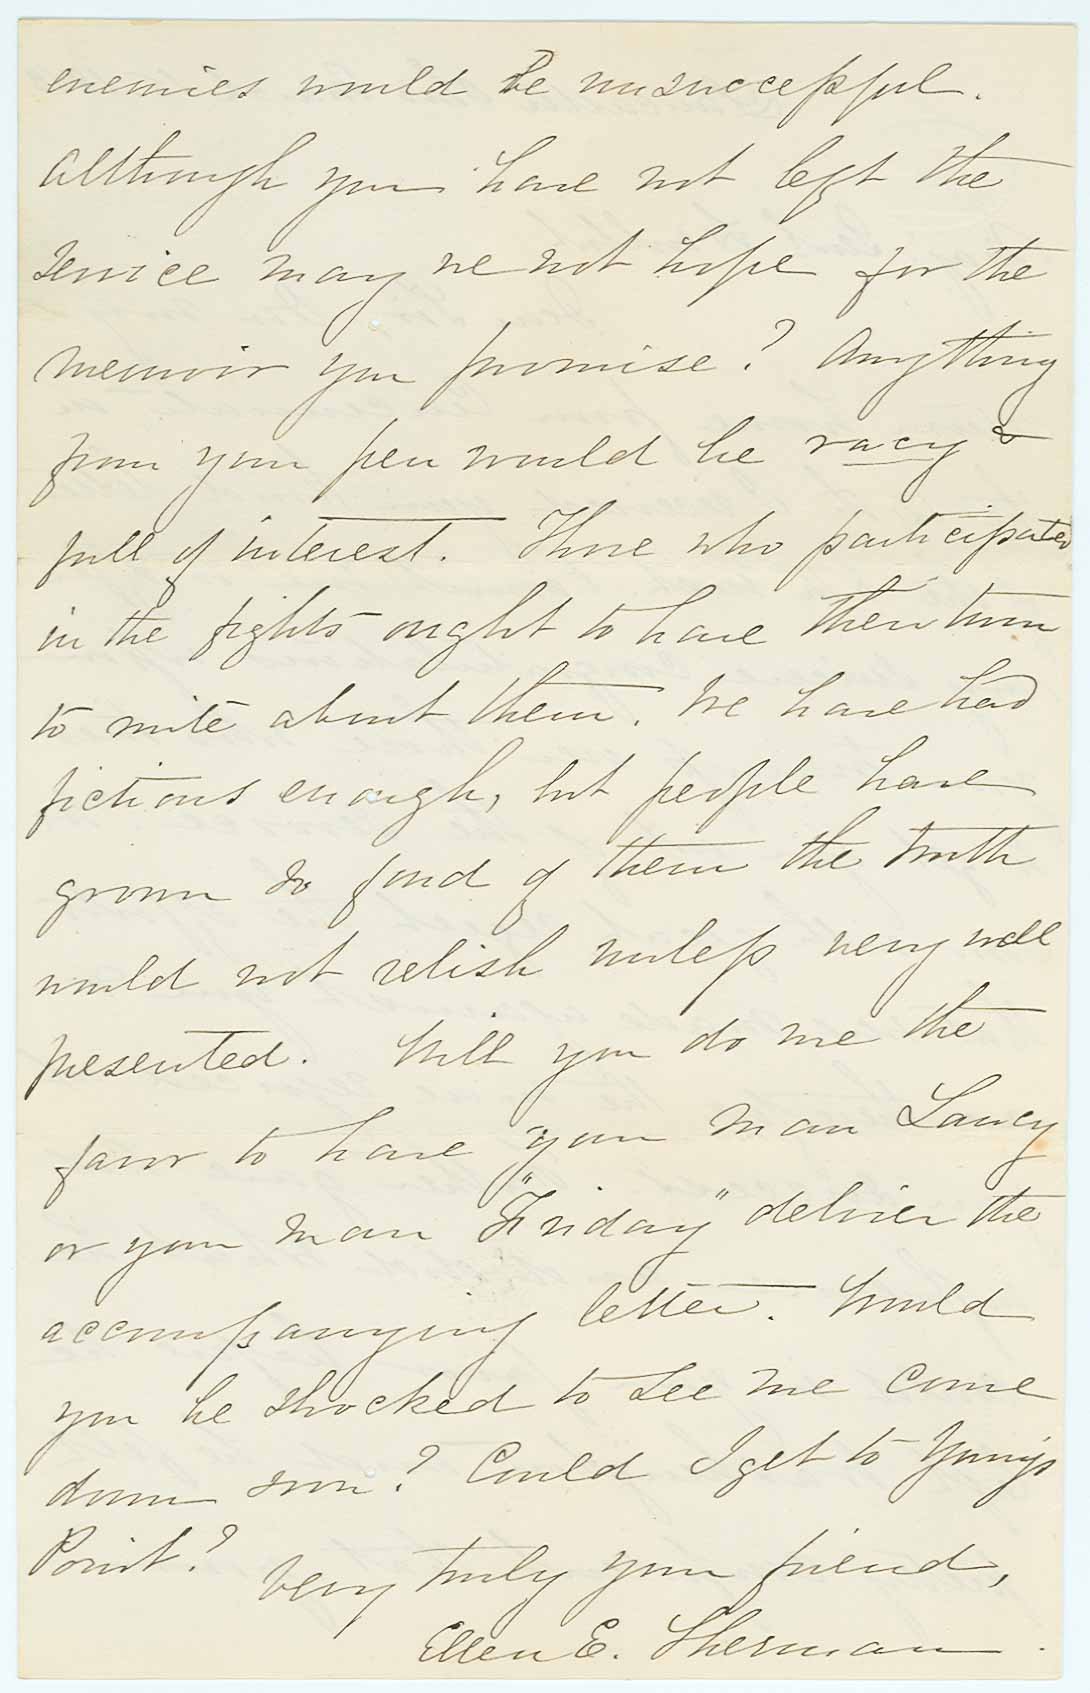 enemies would be unsuccessful.
Although you have not left the
service may we not hope for the
memoir you promise? Anything
from your pen would be racy &
full of interest. Those who participated
in the fights ought to have their turn
to write about them. We have had
fictions enough, but people have
grown so fond of them the truth
would not relish unless very well
presented. Will you do me the
favor to have your man Lancy
or your man "Friday" deliver the
accompanying letter. Would
you be shocked to see me come
down soon? Could I get to Young's
Point?
Very truly your friend,
Ellen E. Sherman.